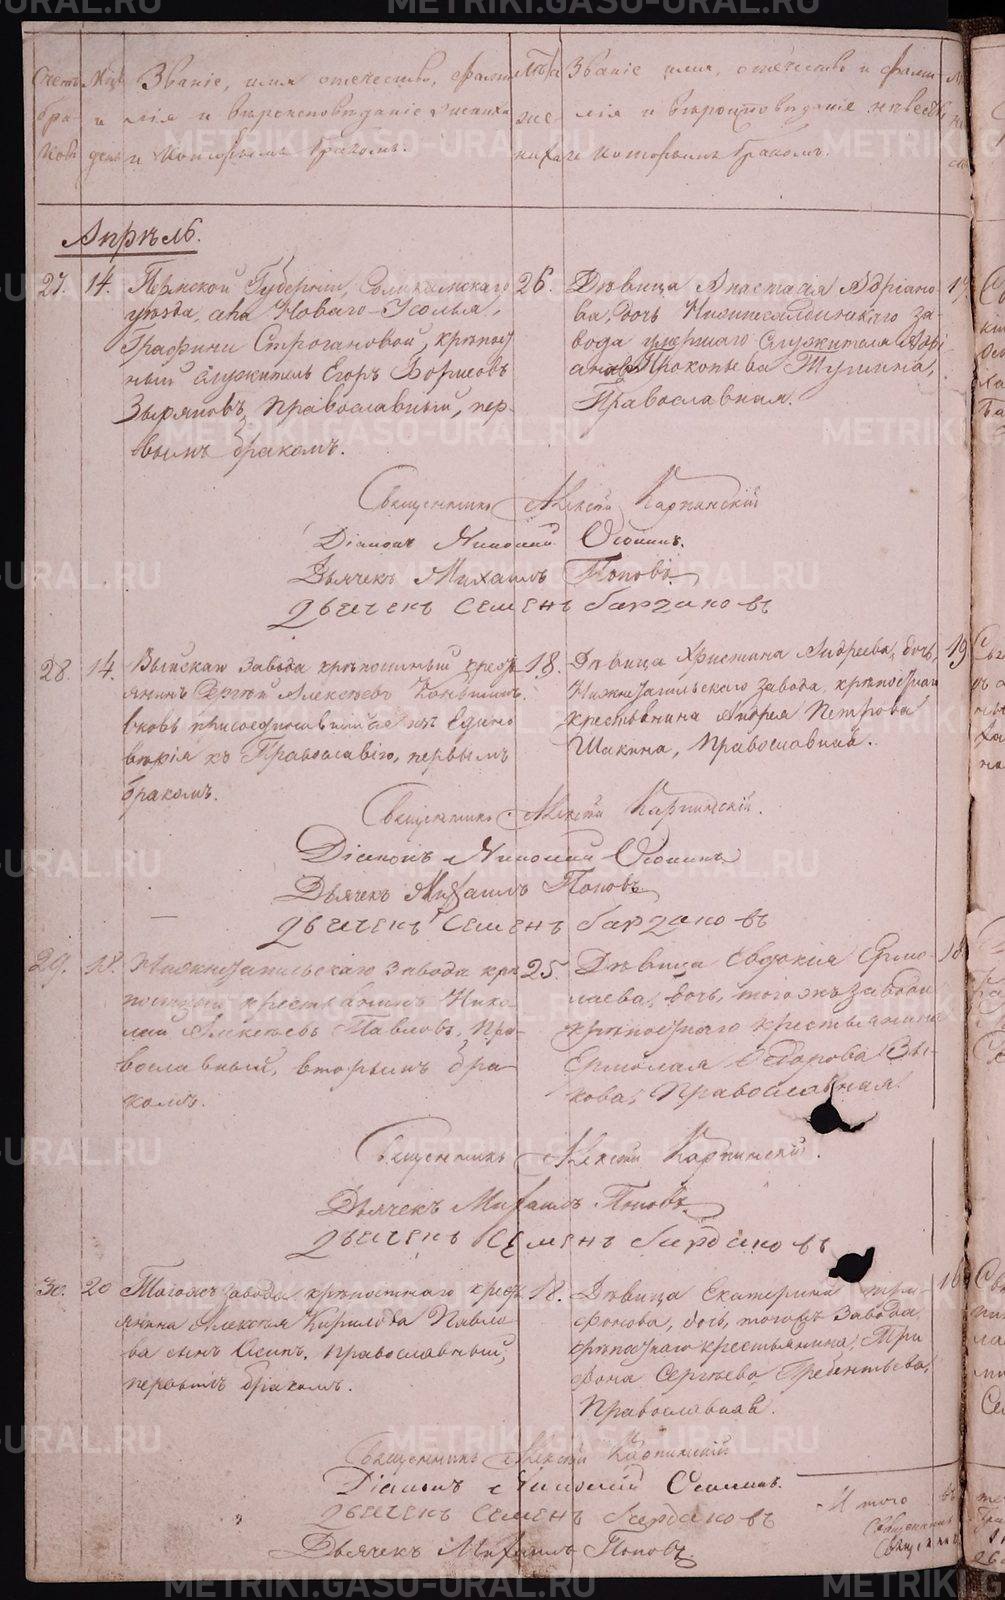 Счетъ Мѣс. Званіе, имя, отечество, фами- Лѣта Званіе, имя, отечество и фами-
бра- и лія и вѣроисповѣданіе жениха же- лія и вѣроисповѣданіе невесты
ковъ день и которымъ бракомъ. ниха и которымъ бракомъ.
Апрѣль.
27. 14. Пермской Губерніи, Соликамскаго 26.
уѣзда, села Новаго-Усолья,
Графини Строгановой, крѣпост-
ный служитель Егоръ Борисовъ
Зыряновъ, православный, пер-
вымъ бракомъ.
Дѣвица Анастасія Адріано-
ва, дочь Нижнесалдинскаго за-
вода умершаго служителя Адрі-
ана Прокопьева Тушина,
Православная.
Священникъ Алексѣй Карпинскій
Діаконъ Николай Осонинъ.
Дьячекъ Михаилъ Поповъ
Дьячекъ Семенъ
28. 14. Выйскаго завода крѣпостный крест- 18.
янинъ Сергѣй Алексѣевъ
вновь присоединившійся изъ Едино-
вѣрія къ Православію, первымъ
бракомъ.
Дѣвица Христина Андреева, дочь, 19
Нижнетагильскаго завода, крѣпостнаго
крестьянина Андрея Петрова
Шакина, православная.
Священникъ Алексѣй Карпинскій.
Діаконъ Николай Осонинъ
Дьячекъ Михаилъ Поповъ
Дьячекъ Семенъ
29. 18. Нижнетагильскаго завода крѣ- 25.
постный крестьянинъ Нико-
лай Алексѣевъ Павловъ, пра-
вославный, вторымъ бра-
комъ.
Дѣвица Евдокія Ермо- 18
лаева, дочь, тогожъ завода
крѣпостнаго крестьянина
Ермолая Ѳедорова Бы-
кова, Православная.
Священникъ Алексѣй Карпинскій.
Дьячекъ Михаилъ Поповъ
Дьячекъ Семенъ
30. 20 Тогожъ завода крѣпостнаго крест- 18.
янина Алексѣя Кирилова Павло-
ва сынъ Осипъ, православный,
первымъ бракомъ.
Дѣвица Екатерина Три-
фонова, дочь, тогожъ завода,
крѣпостнаго крестьянина, Три-
фона Сергѣева Гребентьева,
Православная.
Священникъ Алексѣй Карпинскій
Діаконъ Николай Осонинъ.
Дьячекъ Семенъ
Дьячекъ Михаилъ Поповъ
Итого въ
Священникъ
METRIKI.GASO-URAL.RU